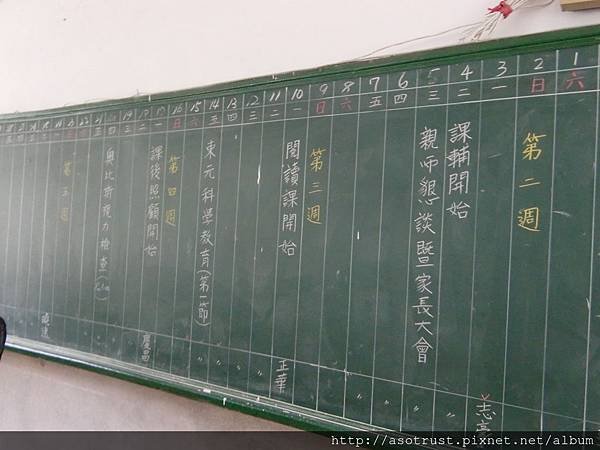 1 六
2 日 第二週
3 一
4 二 課輔開始
5 三 親師懇談暨家長大會
6 四
7 五
8 六
9 日 第三週
10 一 閱讀課開始
11 二 正華
12 三
13 四
14 五 東元科學教育(第一節)
15 六
16 日 第四週
17 一 課後照顧開始
18 二
19 三
20 四 奧比斯視力檢查
21 五
第五週
http://asotrust.pixnet.net/album